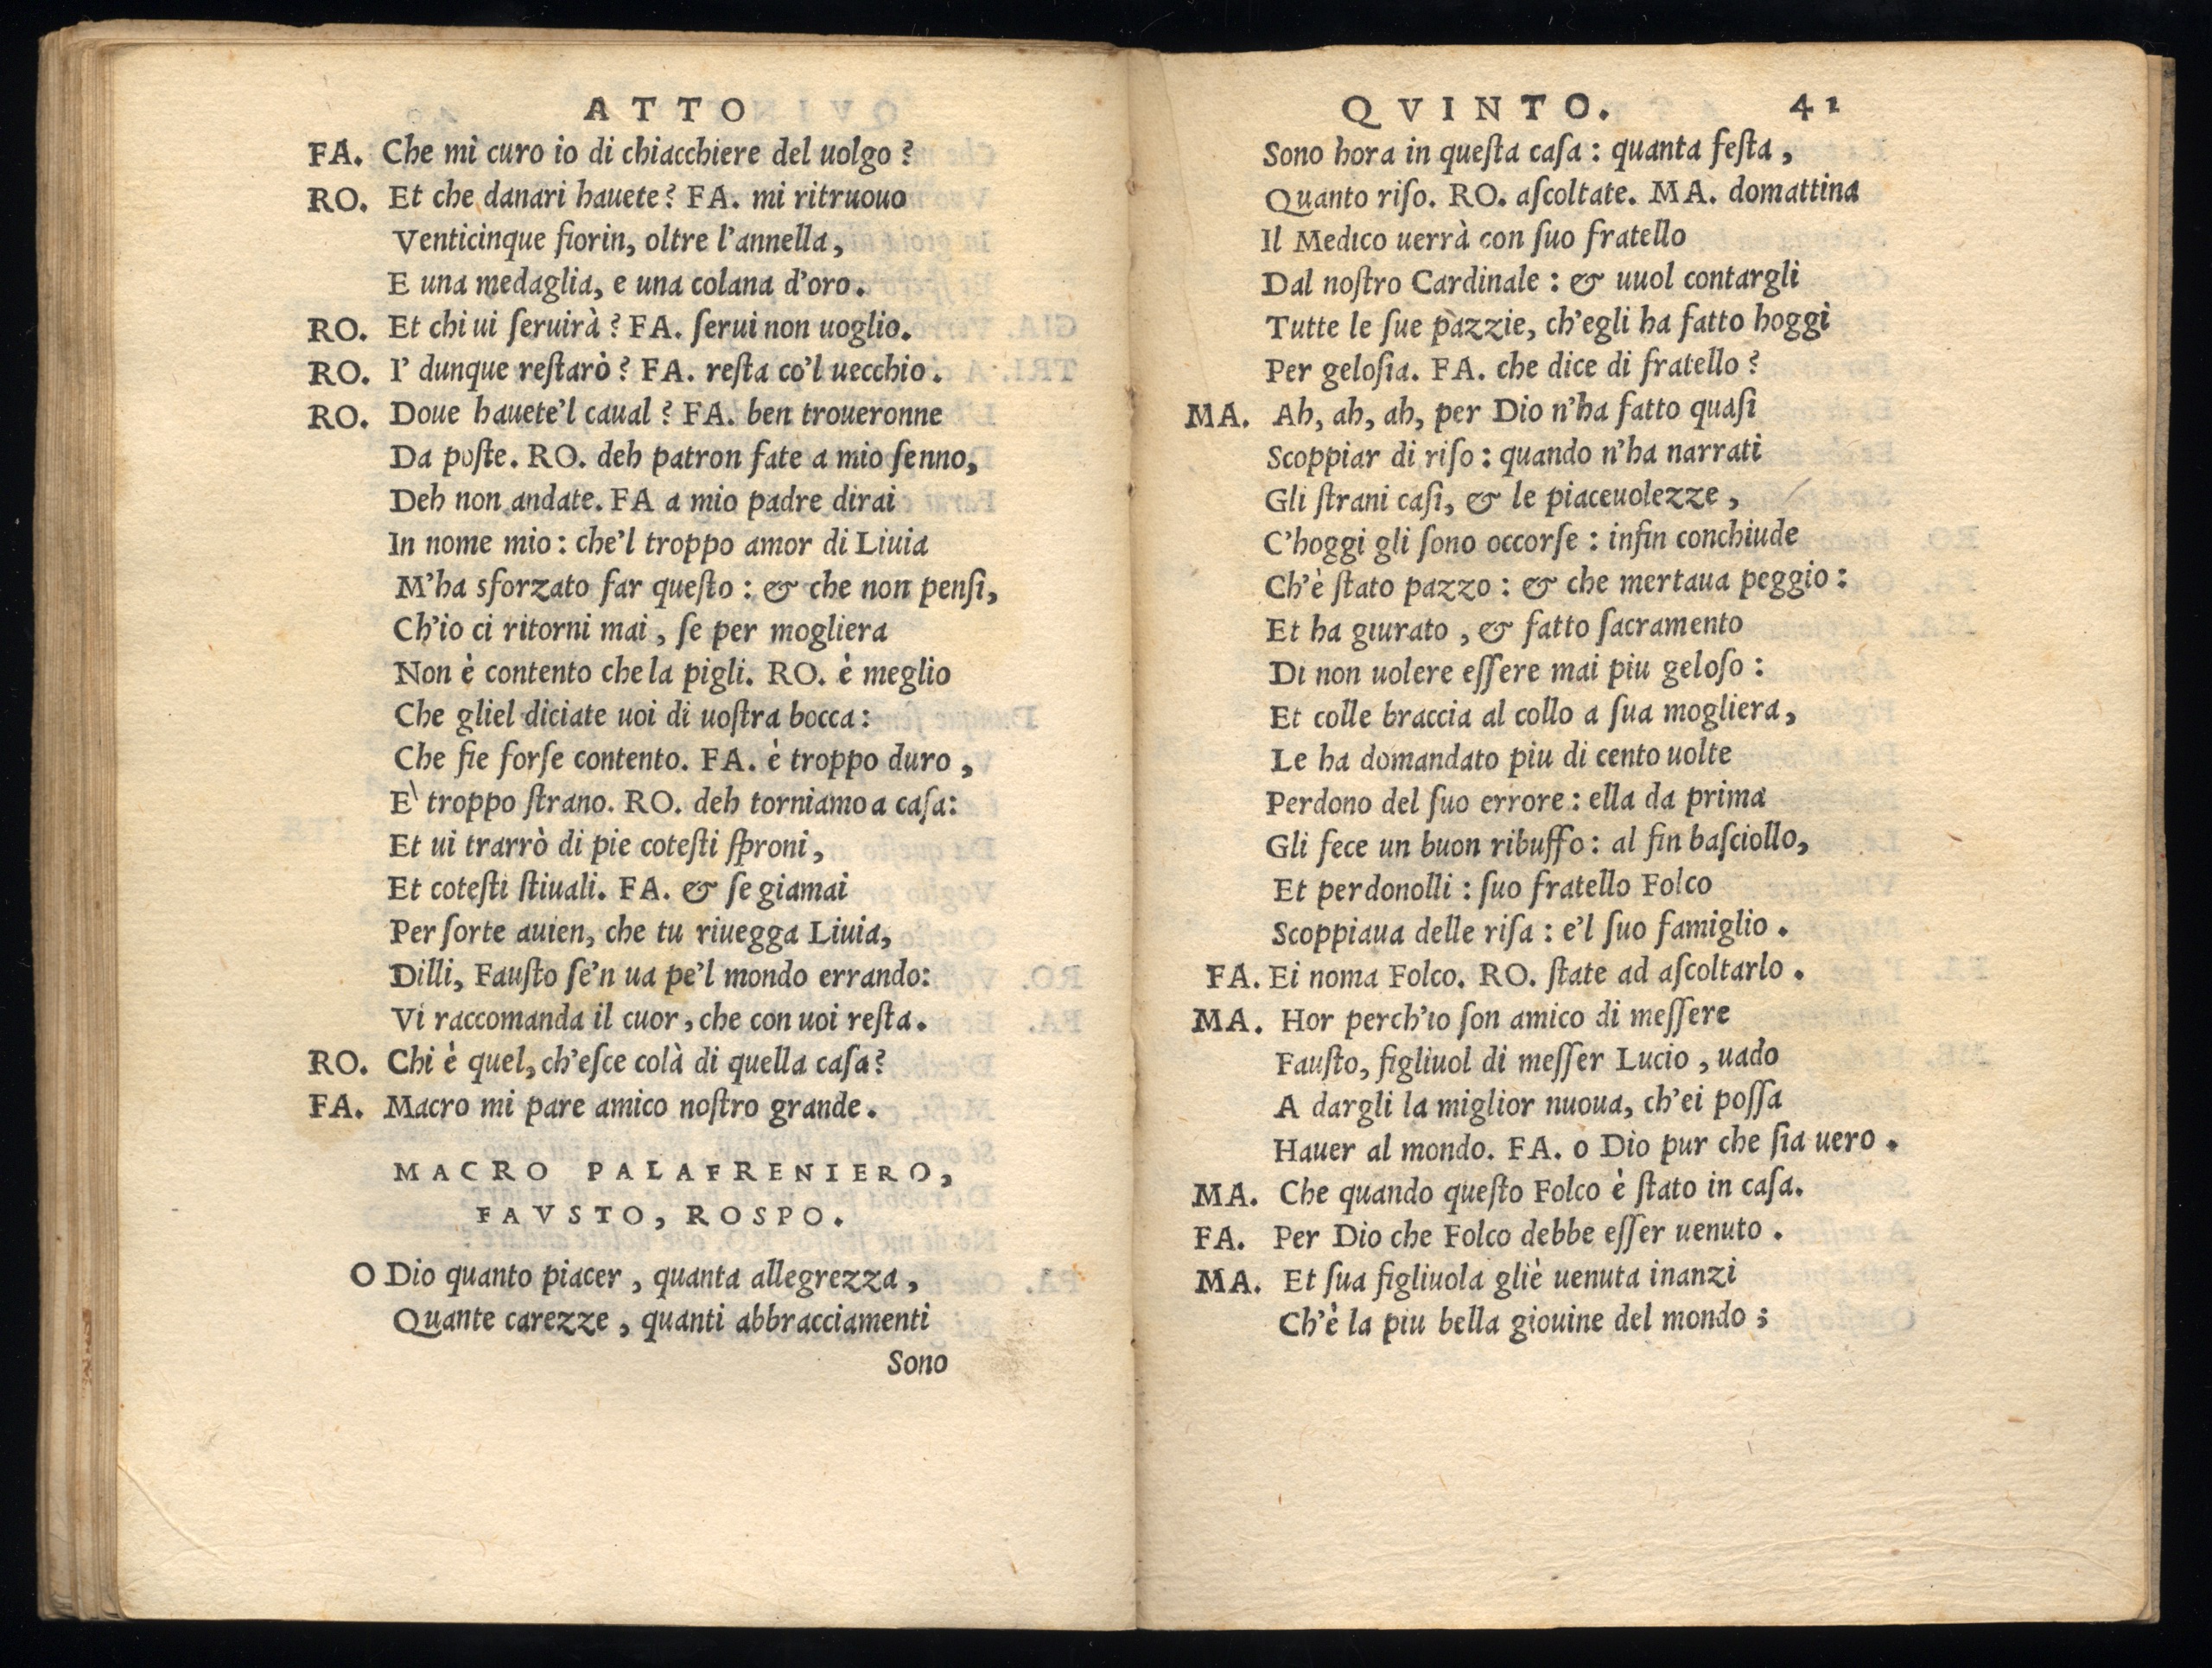 ATTO
FA. Che mi curo io di chiacchiere del uolgo?
RO. Et che danari hauete? FA. mi ritruouo
Venticinque fiorin, oltre l'annella,
E una medaglia, e una colana d'oro.
RO. Et chi ui ſeruirà? FA. ſerui non uoglio.
RO. I' dunque reſtarò? FA. reſta co'l uecchio.
RO. Doue hauete'l caual? FA. ben troueronne
Da poſte. RO. deh patron fate a mio ſenno,
Deh non andate. FA a mio padre dirai
In nome mio: che'l troppo amor di Liuia
M'ha sforzato far queſto: & che non penſi,
Ch'io ci ritorni mai, ſe per mogliera
Non è contento che la pigli. RO. è meglio
Che gliel diciate uoi di uoſtra bocca:
Che fie forſe contento. FA. è troppo duro,
E' troppo ſtrano. RO. deh torniamo a caſa:
Et ui trarrò di pie coteſti ſproni,
Et coteſti ſtiuali. FA. & ſe giamai
Per ſorte auien, che tu riuegga Liuia,
Dilli, Fauſto ſe'n ua pe'l mondo errando:
Vi raccomanda il cuor, che con uoi reſta.
RO. Chi è quel, ch'eſce colà di quella caſa?
FA. Macro mi pare amico noſtro grande.
MACRO PALAFRENIERO,
FAVSTO, ROSPO.
O Dio quanto piacer, quanta allegrezza,
Quante carezze, quanti abbracciamenti
Sono
QVINTO. 41
Sono hora in queſta caſa: quanta feſta,
Quanto riſo. RO. aſcoltate. MA. domattina
Il Medico uerrà con ſuo fratello
Dal noſtro Cardinale: & uuol contargli
Tutte le ſue pazzie, ch'egli ha fatto hoggi
Per geloſia. FA. che dice di fratello?
MA. Ah, ah, ah, per Dio n'ha fatto quaſi
Scoppiar di riſo: quando n'ha narrati
Gli ſtrani caſi, & le piaceuolezze,
C'hoggi gli ſono occorſe: infin conchiude
Ch'è ſtato pazzo: & che mertaua peggio:
Et ha giurato, & fatto ſacramento
Di non uolere eſſere mai piu geloſo:
Et colle braccia al collo a ſua mogliera,
Le ha domandato piu di cento uolte
Perdono del ſuo errore: ella da prima
Gli fece un buon ribuffo: al fin baſciollo,
Et perdonolli: ſuo fratello Folco
Scoppiaua delle riſa: e'l ſuo famiglio.
FA. Ei noma Folco. RO. ſtate ad aſcoltarlo.
MA. Hor perch'io ſon amico di meſſere
Fauſto, figliuol di meſſer Lucio, uado
A dargli la miglior nuoua, ch'ei poſſa
Hauer al mondo. FA. o Dio pur che ſia uero.
MA. Che quando queſto Folco è ſtato in caſa.
FA. Per Dio che Folco debbe eſſer uenuto.
MA. Et ſua figliuola gliè uenuta inanzi
Ch'è la piu bella giouine del mondo;